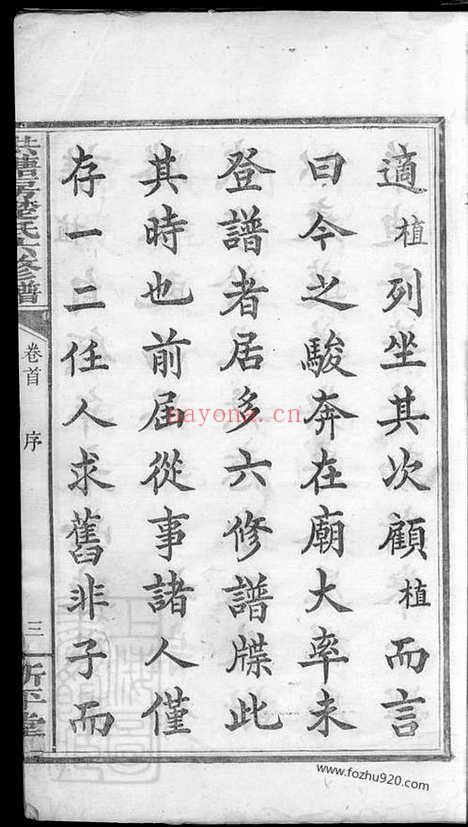 適植列坐其次顧植而言
曰今之駿奔在廟大率未
登譜者居多六修譜牒此
其時也前屆從事諸人僅
存一二任人求舊非子而
氏六修譜
卷首 序
三
堂
nayona.cn
www.fozhu920.com